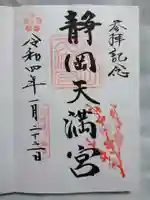 参拝記念
静岡天満宮
令和四年一月二十二日